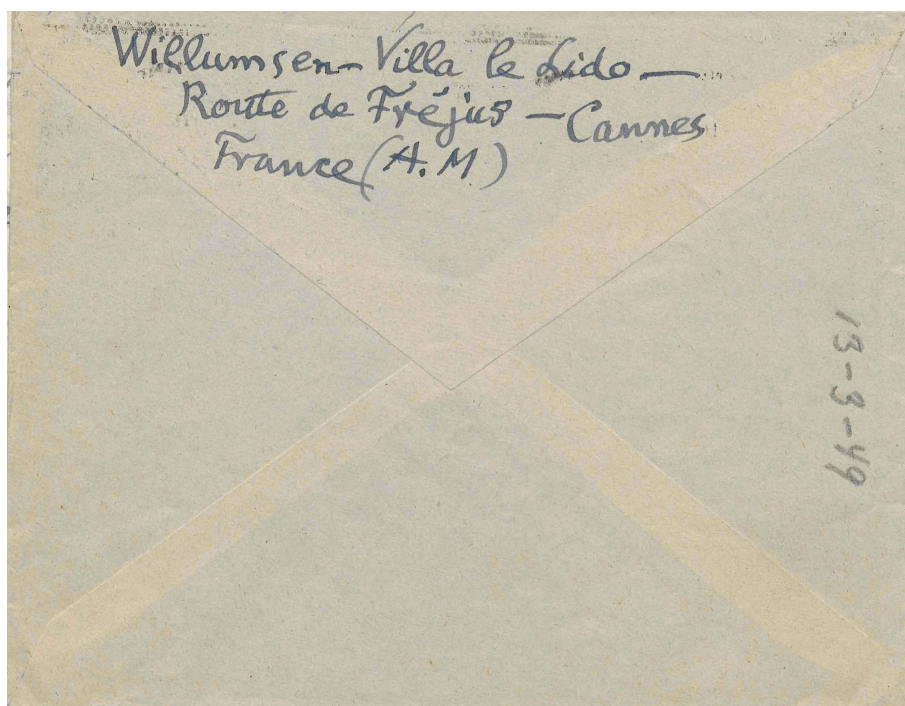 Willumsen - Villa le Lido -
Route de Fréjus - Cannes
France (A.M)
13-3-49